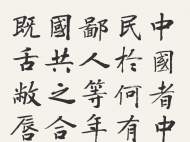 中國者中
民於何有
鄙人等年
國共之合
既舌敝唇